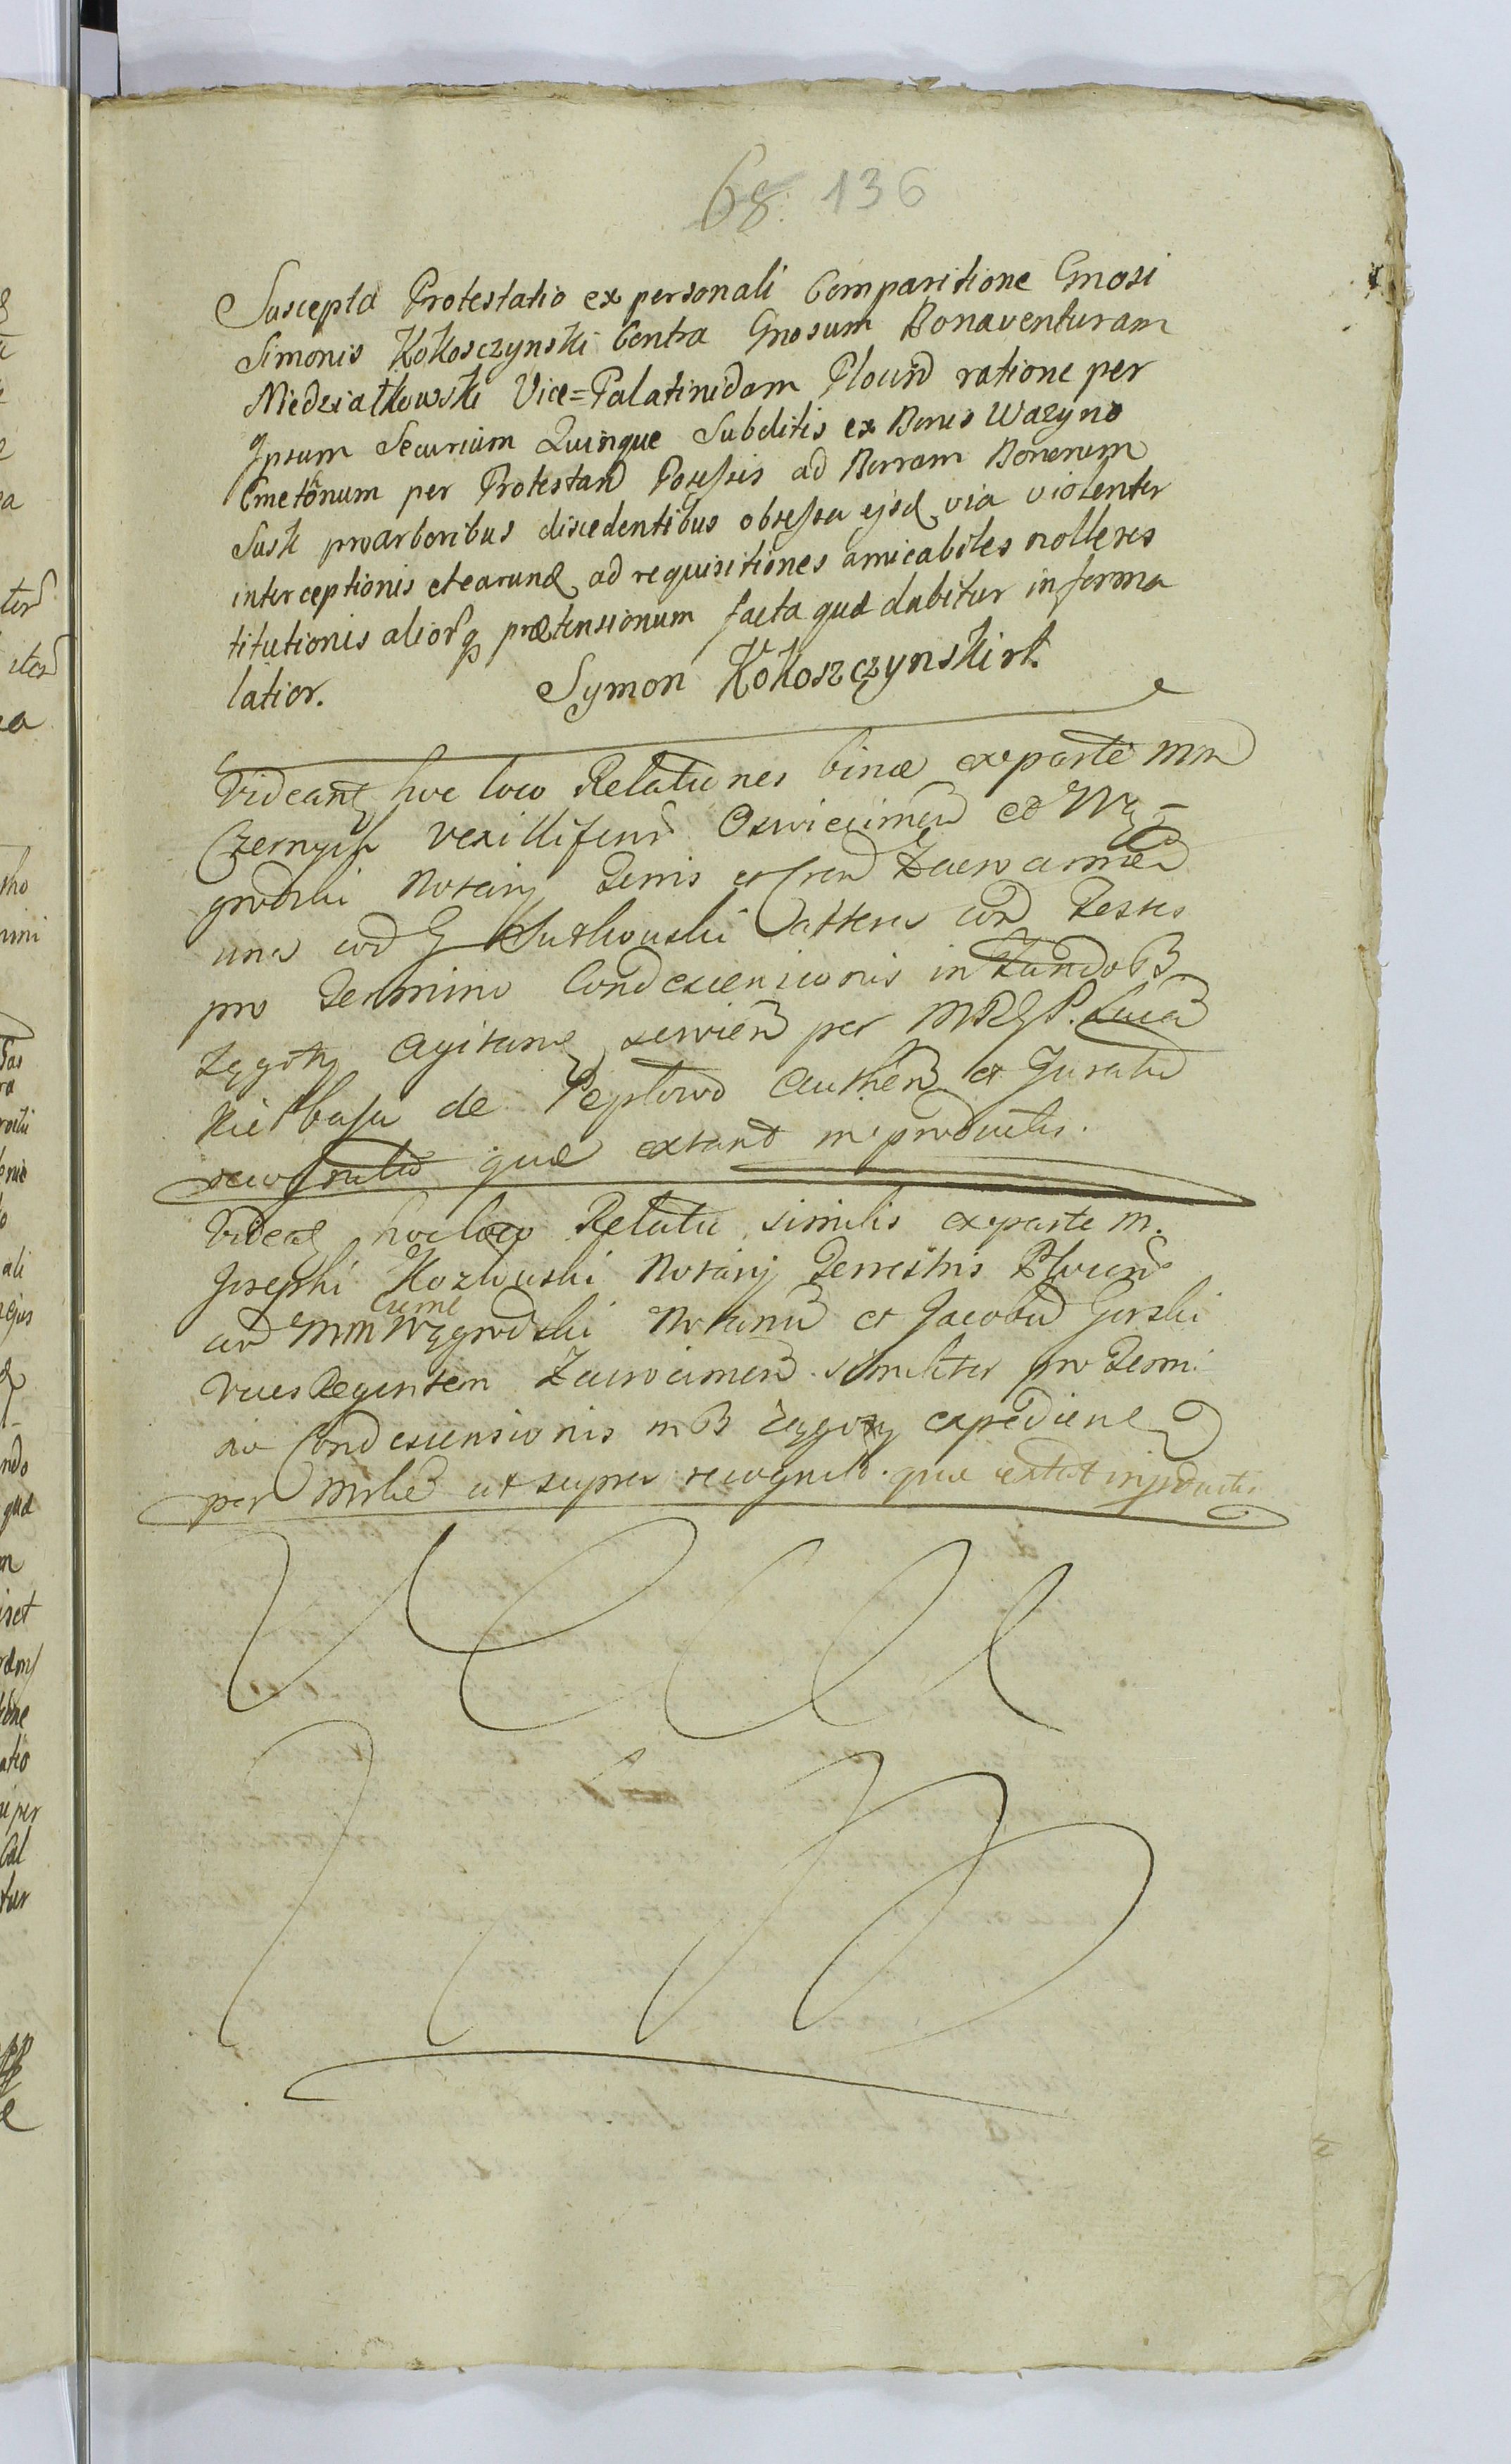 68. 136
Suscepta Protestatio ex personali Comparitione Gnosi
Simonis Kokosczynski Contra Gnosum Bonaventuram
Niedziałkowski Vice=Palatinidam Plocen ratione per
Ipsum Securium Quinque Subditis ex Bonis Wazyno
Cmetonum per Protestan Possessis ad Borram Bonorum
Susk pro arboribus discedentibus obsessa ejsd via violenter
interceptionis et earund ad requisitiones amicabiles nolle res
titutionis aliorq prætensionum facta qua dabitur in forma
latior.
Symon Kokoszczynski rk
Videant hoc loco Relationes binæ ex parte Mm
Czernych Vexilliferi Oswiecimen et Wę=
grodzki Notarij Terris et Cren Zawamen
una cod G Sutkowski altera cod Testes
pro Termino Condescensionis in Fundo B
Zęgoty agitand servien per
Kiełbasa de Peplowo Authen et Juratu
recognitu quæ extant in productis.
Videat hoc loco Relatio similis ex parte M.
Josephi Kozłowski Notarij Terrestris Plocen
ad MM Węgrodzki Notariu et Jacobu Gorski
Vices Regentem Zawoimen similiter pro Termi
no Condescensionis in B Zęgoty expediend
per ut supra recognit. quæ extat in productis